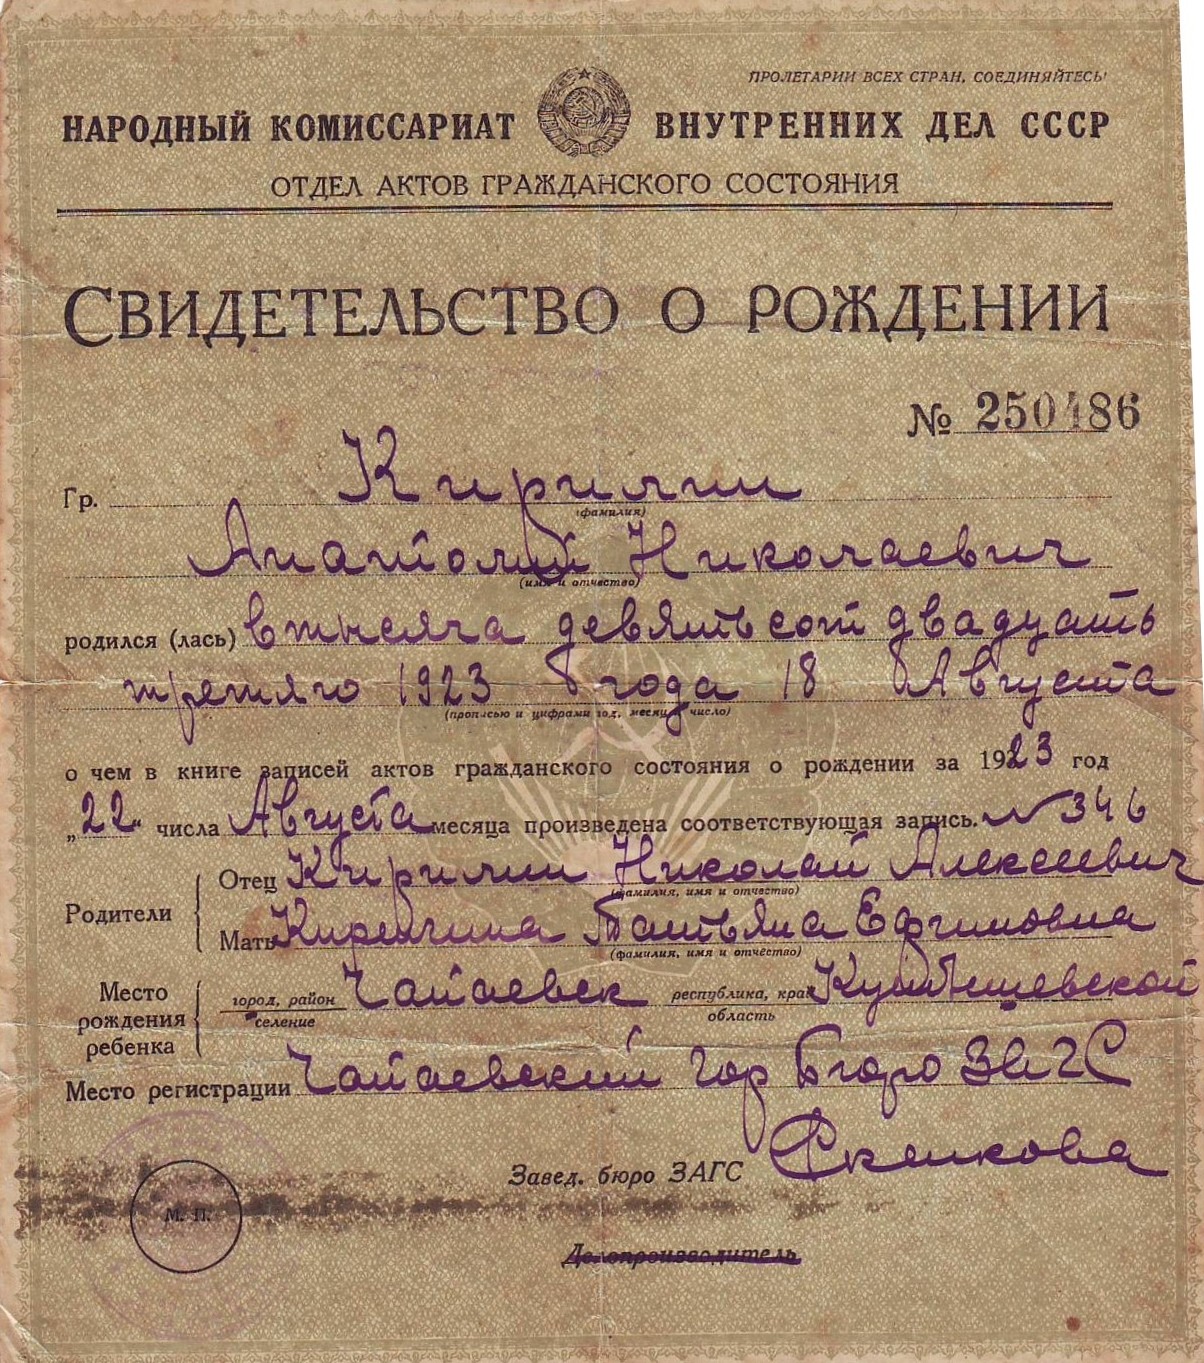 ПРОЛЕТАРИИ ВСЕХ СТРАН, СОЕДИНЯЙТЕСЬ!
НАРОДНЫЙ КОМИССАРИАТ ВНУТРЕННИХ ДЕЛ СССР
ОТДЕЛ АКТОВ ГРАЖДАНСКОГО СОСТОЯНИЯ
СВИДЕТЕЛЬСТВО О РОЖДЕНИИ
№ 250486
Гр. Кирилин
(фамилия)
Анатолий Николаевич
(имя и отчество)
родился (лась) в тысяча девятьсот двадцать
третяго 1923 года 18 Августа
(прописью и цифрами год, месяц и число)
о чем в книге записей актов гражданского состояния о рождении за 1923 год
„22“ числа Августа месяца произведена соответствующая запись. № 346
Родители
Отец Кирилин Николай Алексеевич
(фамилия, имя и отчество)
Мать Татьяна Ефимовна
(фамилия, имя и отчество)
Место рождения ребенка
город, район Чапаевск республика, край Куйбышевской
селение область
Место регистрации Чапаевский Гор Бюро ЗАГС
Завед. бюро ЗАГС
М. П.
Делопроизводитель